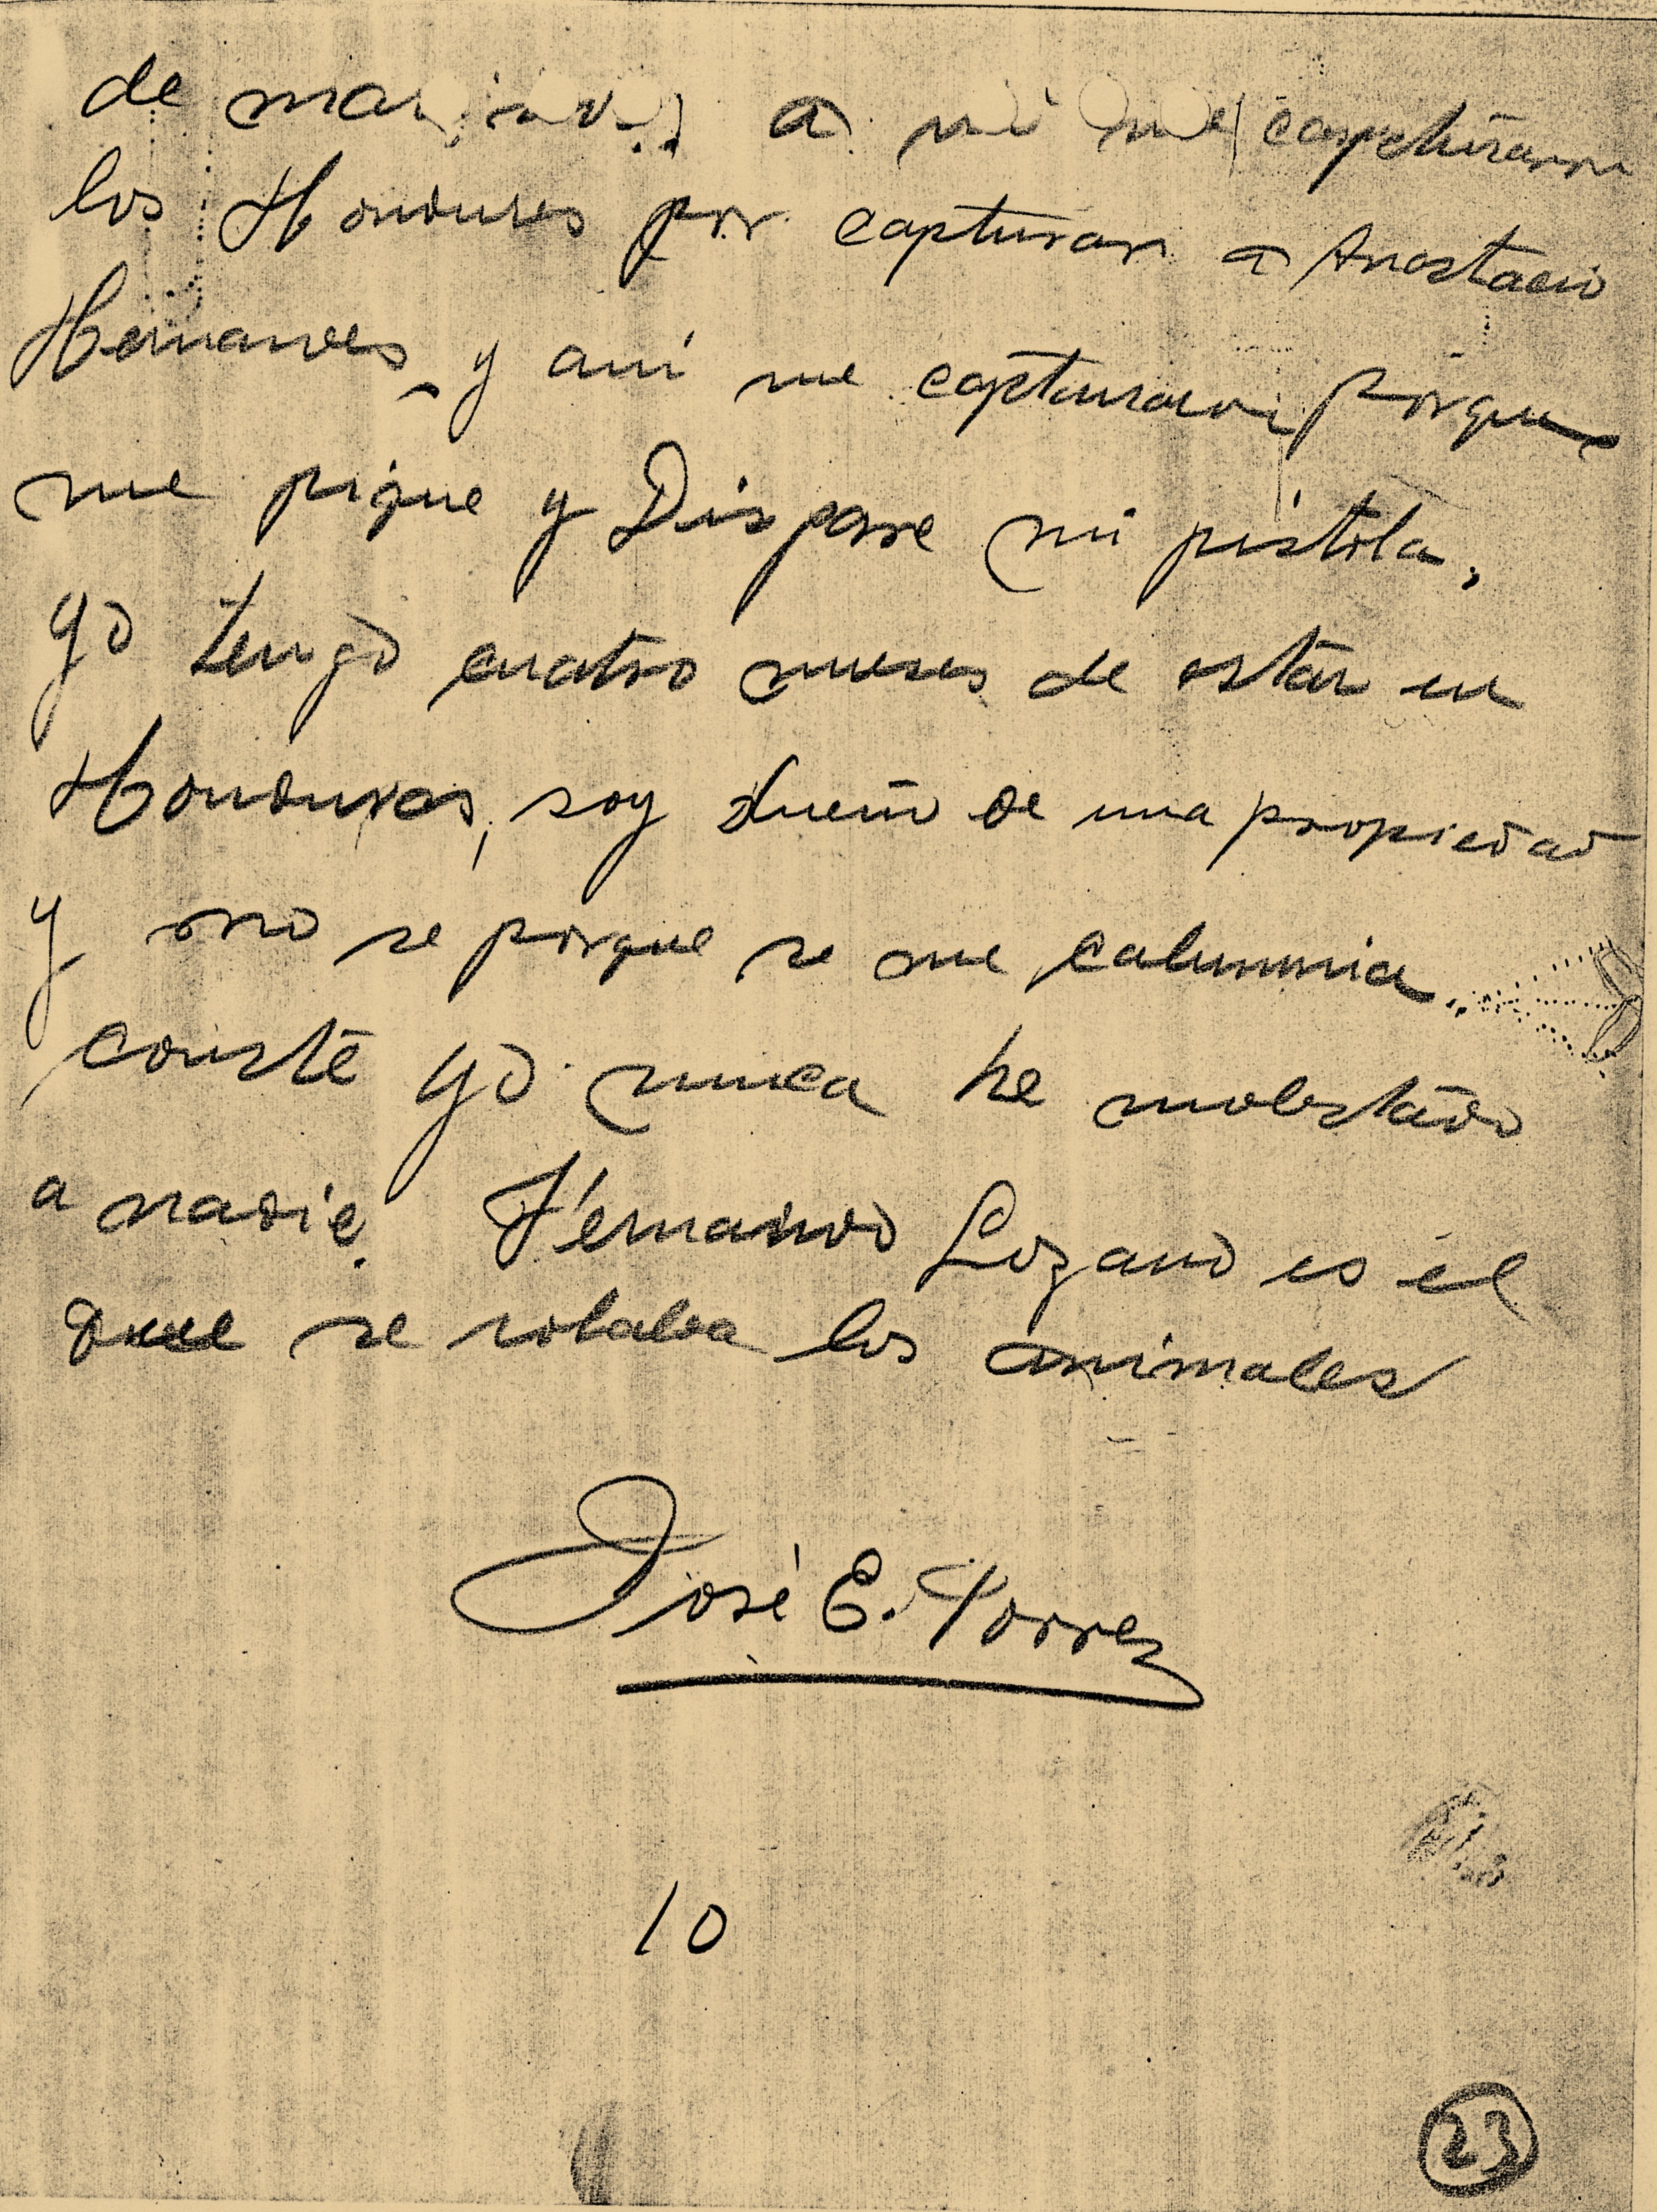 de a mi me capturaron
los Hondures por capturar a Anastacio
Hernandes y ami me capturaron porque
me pique y Dispare mi pistola,
yo tengo cuatro meses de estar en
Honduras, soy dueño de una propiedad
y no se porque se me calumnia
conste yo nunca he molestado
a nadie. Fernando Lozano es el
que se robaba los animales
José E. Torres
10
23